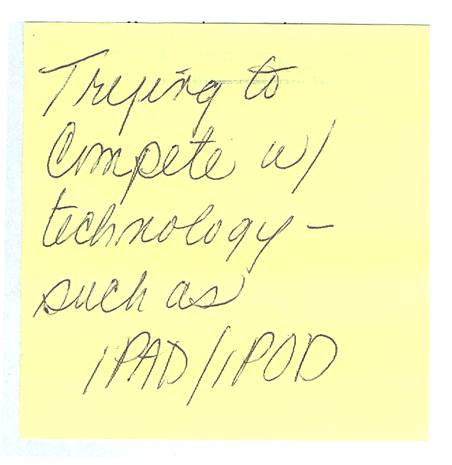 Trying to
Compete w/
technology -
such as
iPAD/iPOD